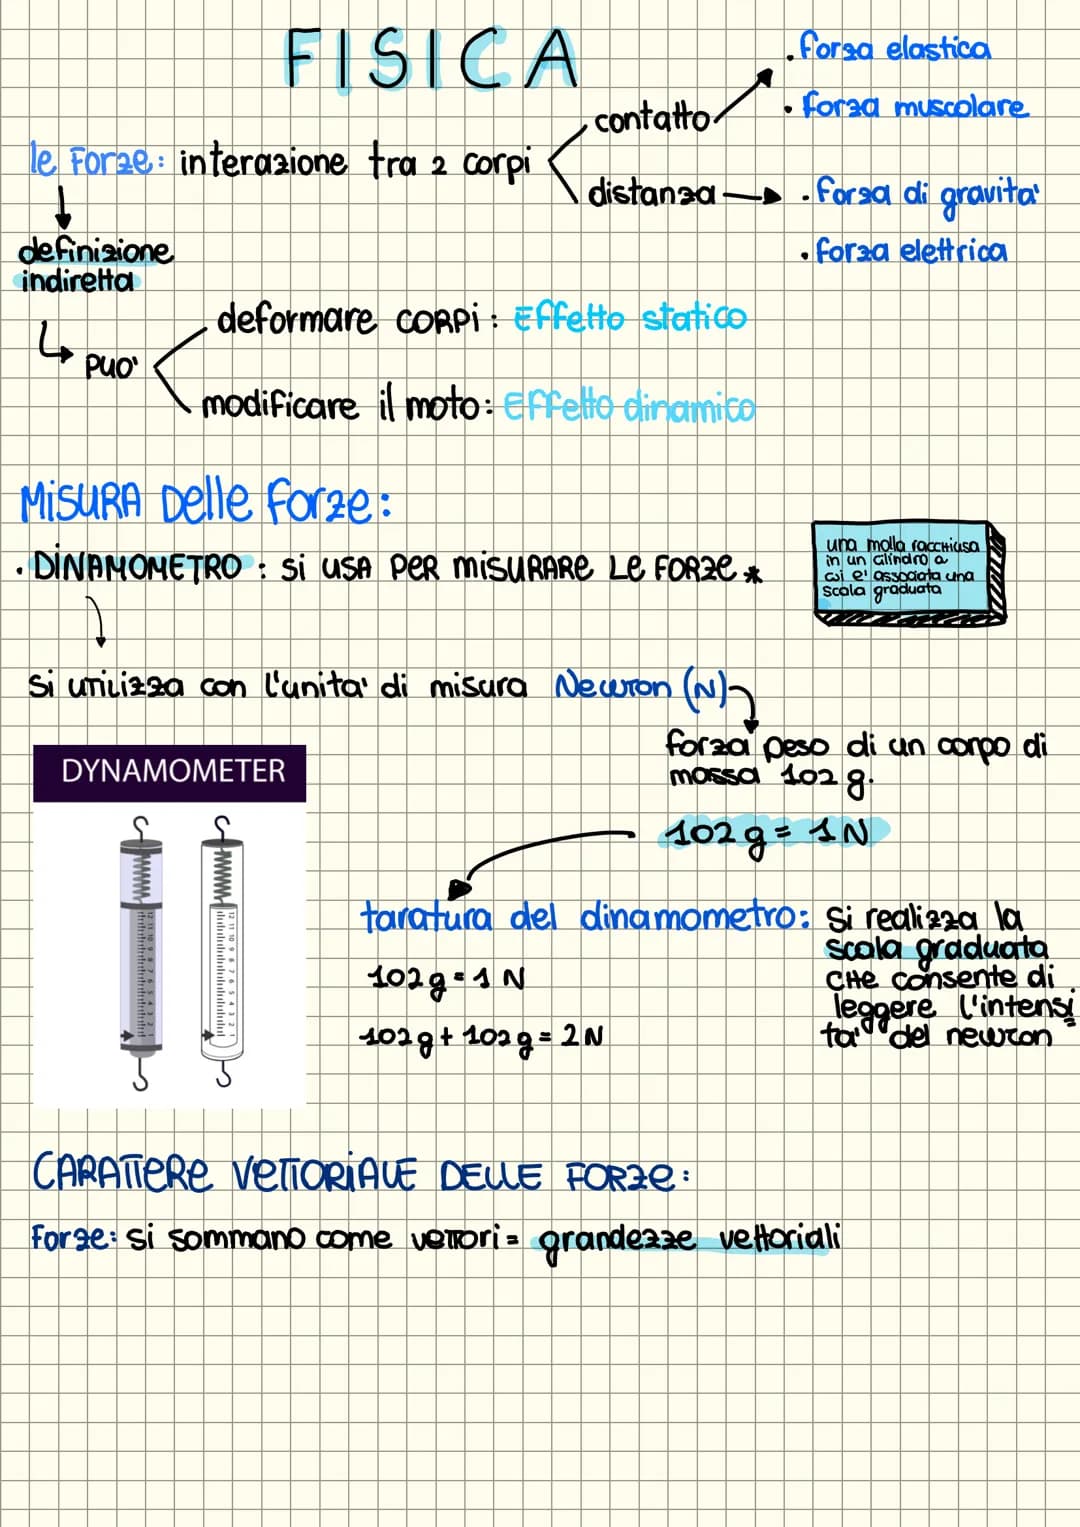 FISICA
le Forze: interazione tra 2 corpi
contatto
. forza elastica
. forza muscolare
distanza
. forza di gravita'
. forza elettrica
definizione
indiretta
puo'
deformare corpi: Effetto statico
modificare il moto: Effetto dinamico
MISURA Delle forze:
. DINAMOMETRO : si usa per misurare le forze *
una molla racchiusa
in un cilindro a
cui e' associata una
scala graduata
si utilizza con l'unita' di misura Newton (N)
forza peso di un corpo di
massa 102 g.
102 g = 1 N
DYNAMOMETER
12 11 10 9 8 7 6 5 4 3 2 1
12 11 10 9 8 7 6 5 4 3 2 1
taratura del dinamometro: si realizza la
scala graduata
che consente di
leggere l'intensi
ta' del newton
102 g = 1 N
102 g + 102 g = 2 N
CARATTERE VETTORIALE DELLE FORZE:
Forze: si sommano come vettori = grandezze vettoriali